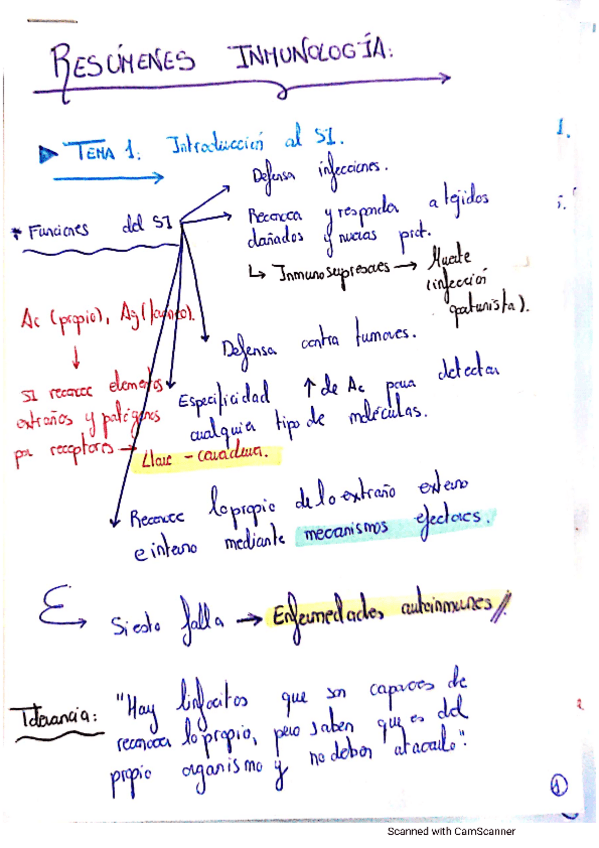 RESÚMENES INMUNOLOGÍA:
TEMA 1. Introducción al SI.
* Funciones del SI
Defensa infecciones.
Reconoce y responder a tejidos
dañados y nuevas prot.
↳ Inmunosupresores → Muerte
(infección
oportunista).
Ac (propio), Ag
↓
SI reconoce elementos
extraños y patógenos
por receptores →
Llave - cerradura.
Defensa contra tumores.
Especificidad ↑ de Ac para detectar
cualquier tipo de moléculas.
Reconoce lo propio de lo extraño externo
e interno mediante mecanismos efectores.
Si esto falla → Enfermedades autoinmunes //
Tolerancia: "Hay linfocitos que son capaces de
reconocer lo propio, pero saben que es del
propio organismo y no deben atacarlo".
1
Scanned with CamScanner